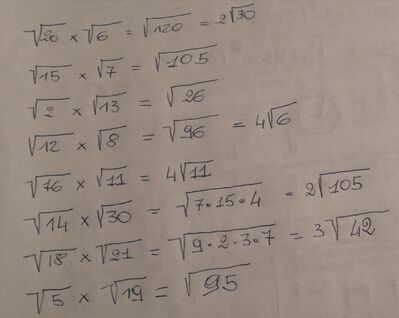 √20 × √6 = √120 = 2√30
√15 × √7 = √105
√2 × √13 = √26
√12 × √8 = √96 = 4√6
√16 × √11 = 4√11
√14 × √30 = √7·15·4 = 2√105
√18 × √21 = √9·2·3·7 = 3√42
√5 × √19 = √95